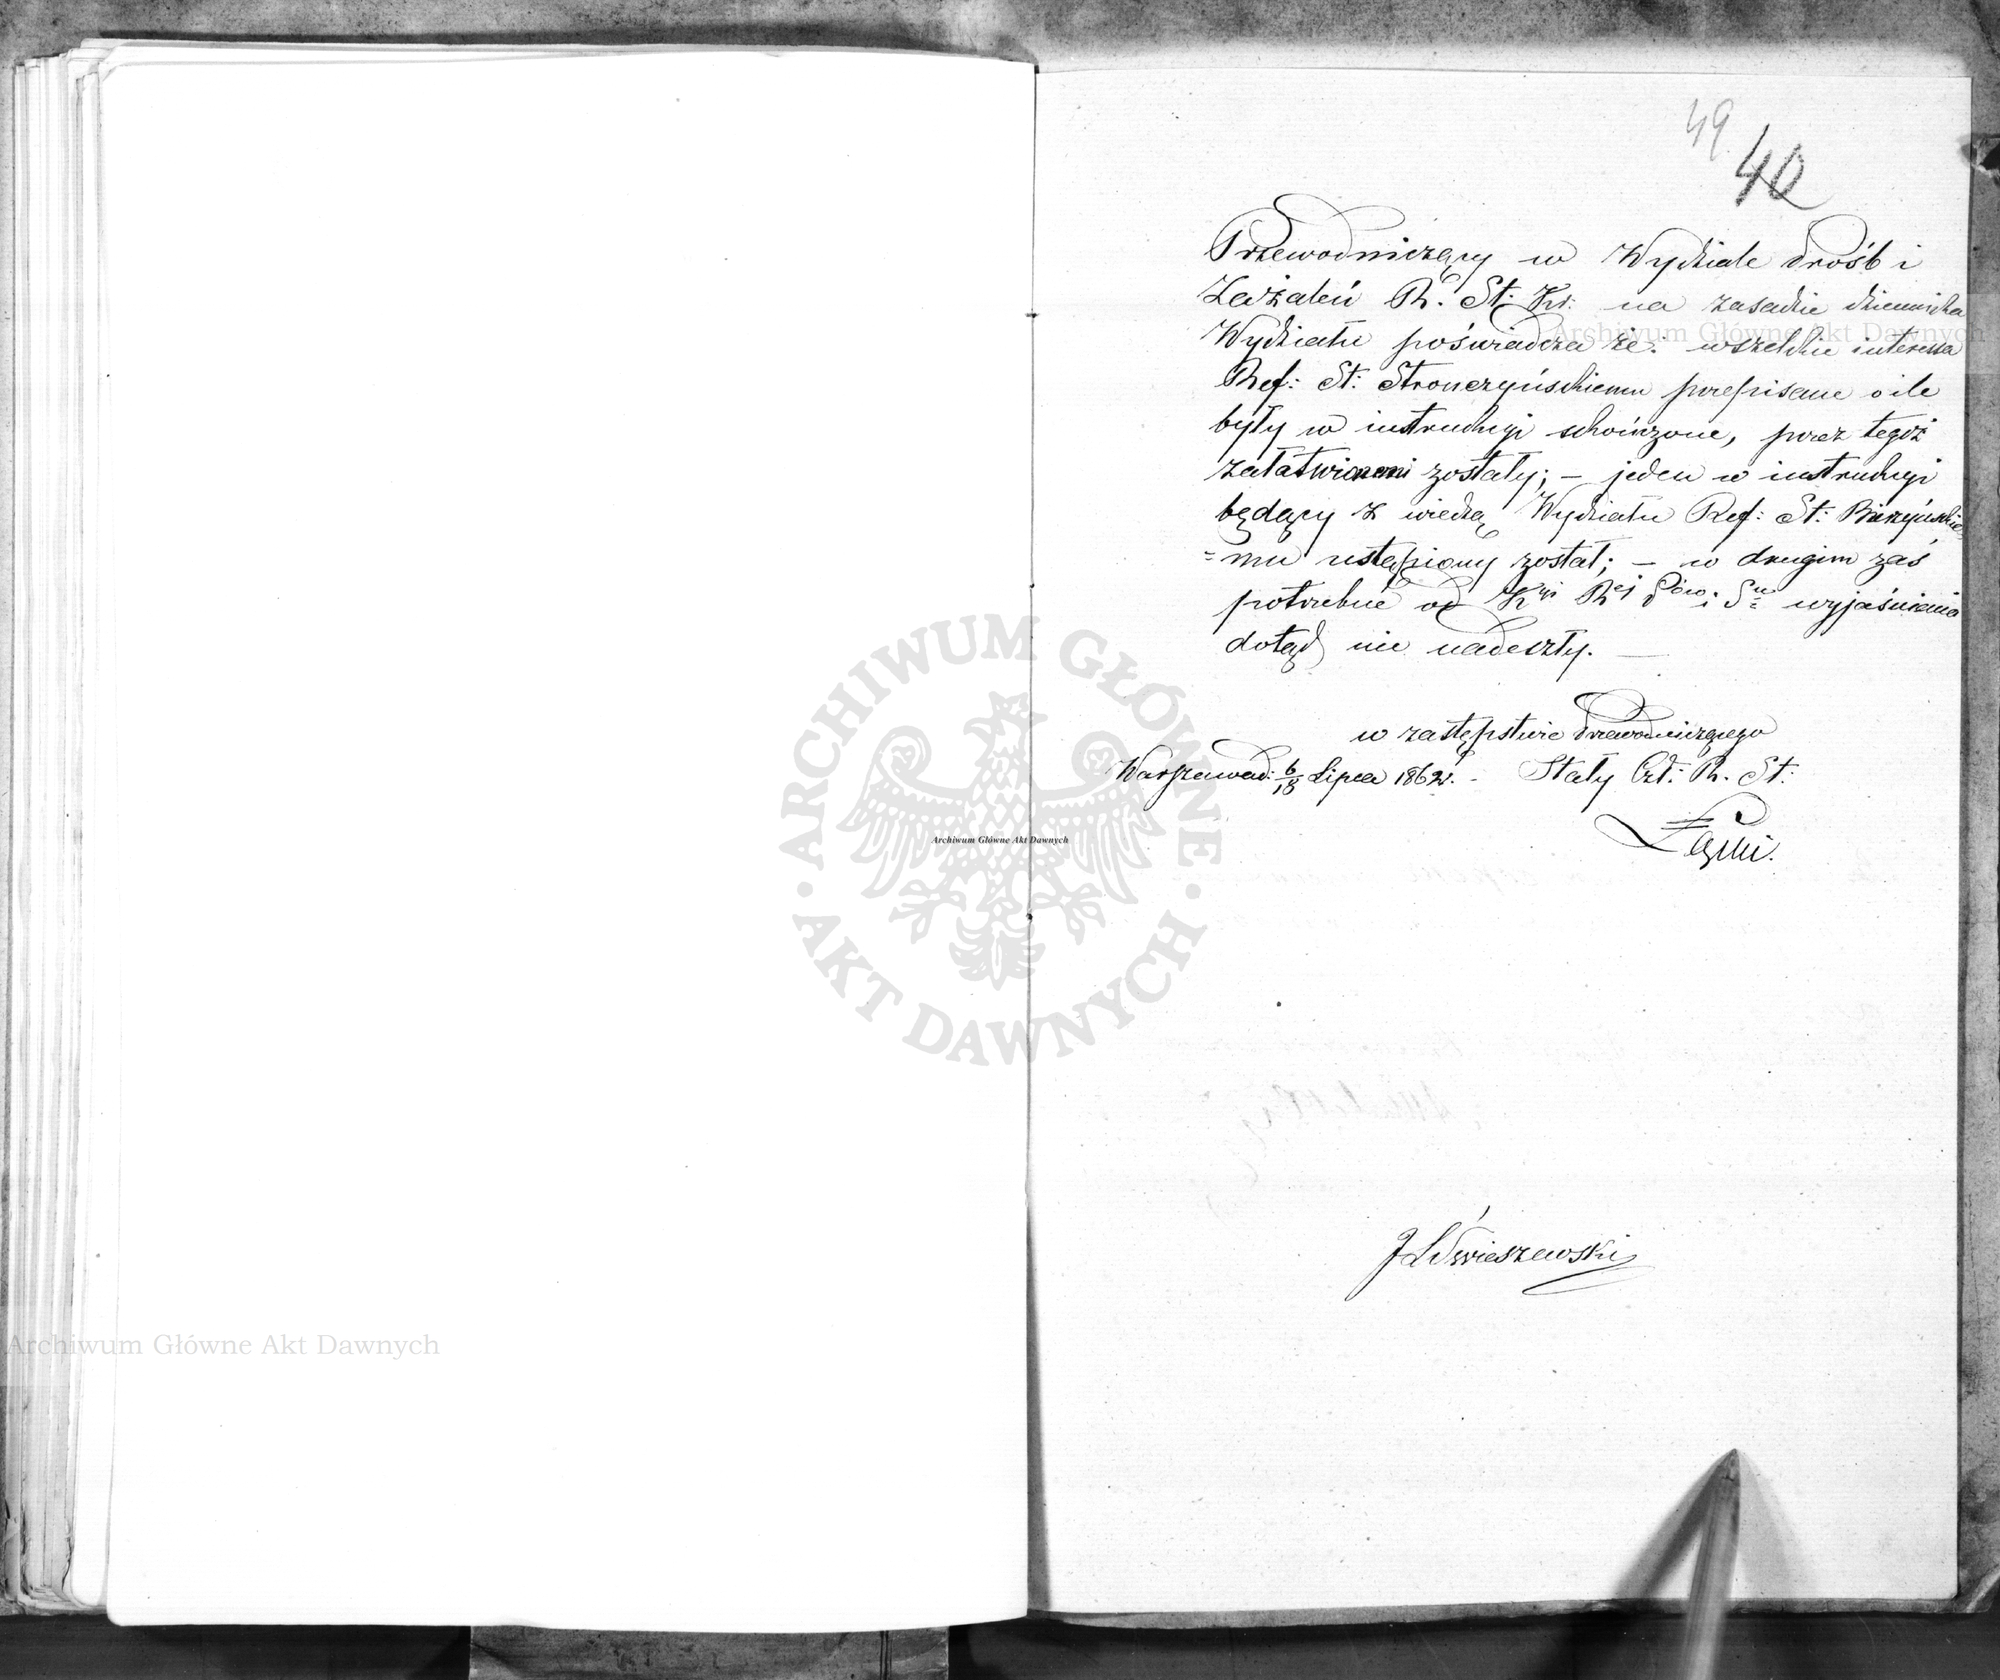 49.
40
Przewodniczący w Wydziale Próśb i
Zażaleń R. St: Kr: na zasadzie dziennika
Wydziału poświadcza że: wszelkie interessa
Ref: St: Stronczyńskiemu przepisane o ile
były w instrukcyi skończone, przez tegoż
załatwionemi zostały; – jeden w instrukcyi
będący z wiedzą Wydziału Ref: St: Bieczyńskie
=mu ustąpiony został; – w drugim zaś
potrzebne od Kyi Rej Pów i Su wyjaśnienia
dotąd nie nadeszły. —
w zastępstwie Przewodniczącego
Warszawa d: 6/18 Lipca 1862 r. - Stały Czł: R. St:
Łąski.
Archiwum Główne Akt Dawnych
Archiwum Główne Akt Dawnych
ARCHIWUM GŁÓWNE • AKT DAWNYCH •
Archiwum Główne Akt Dawnych